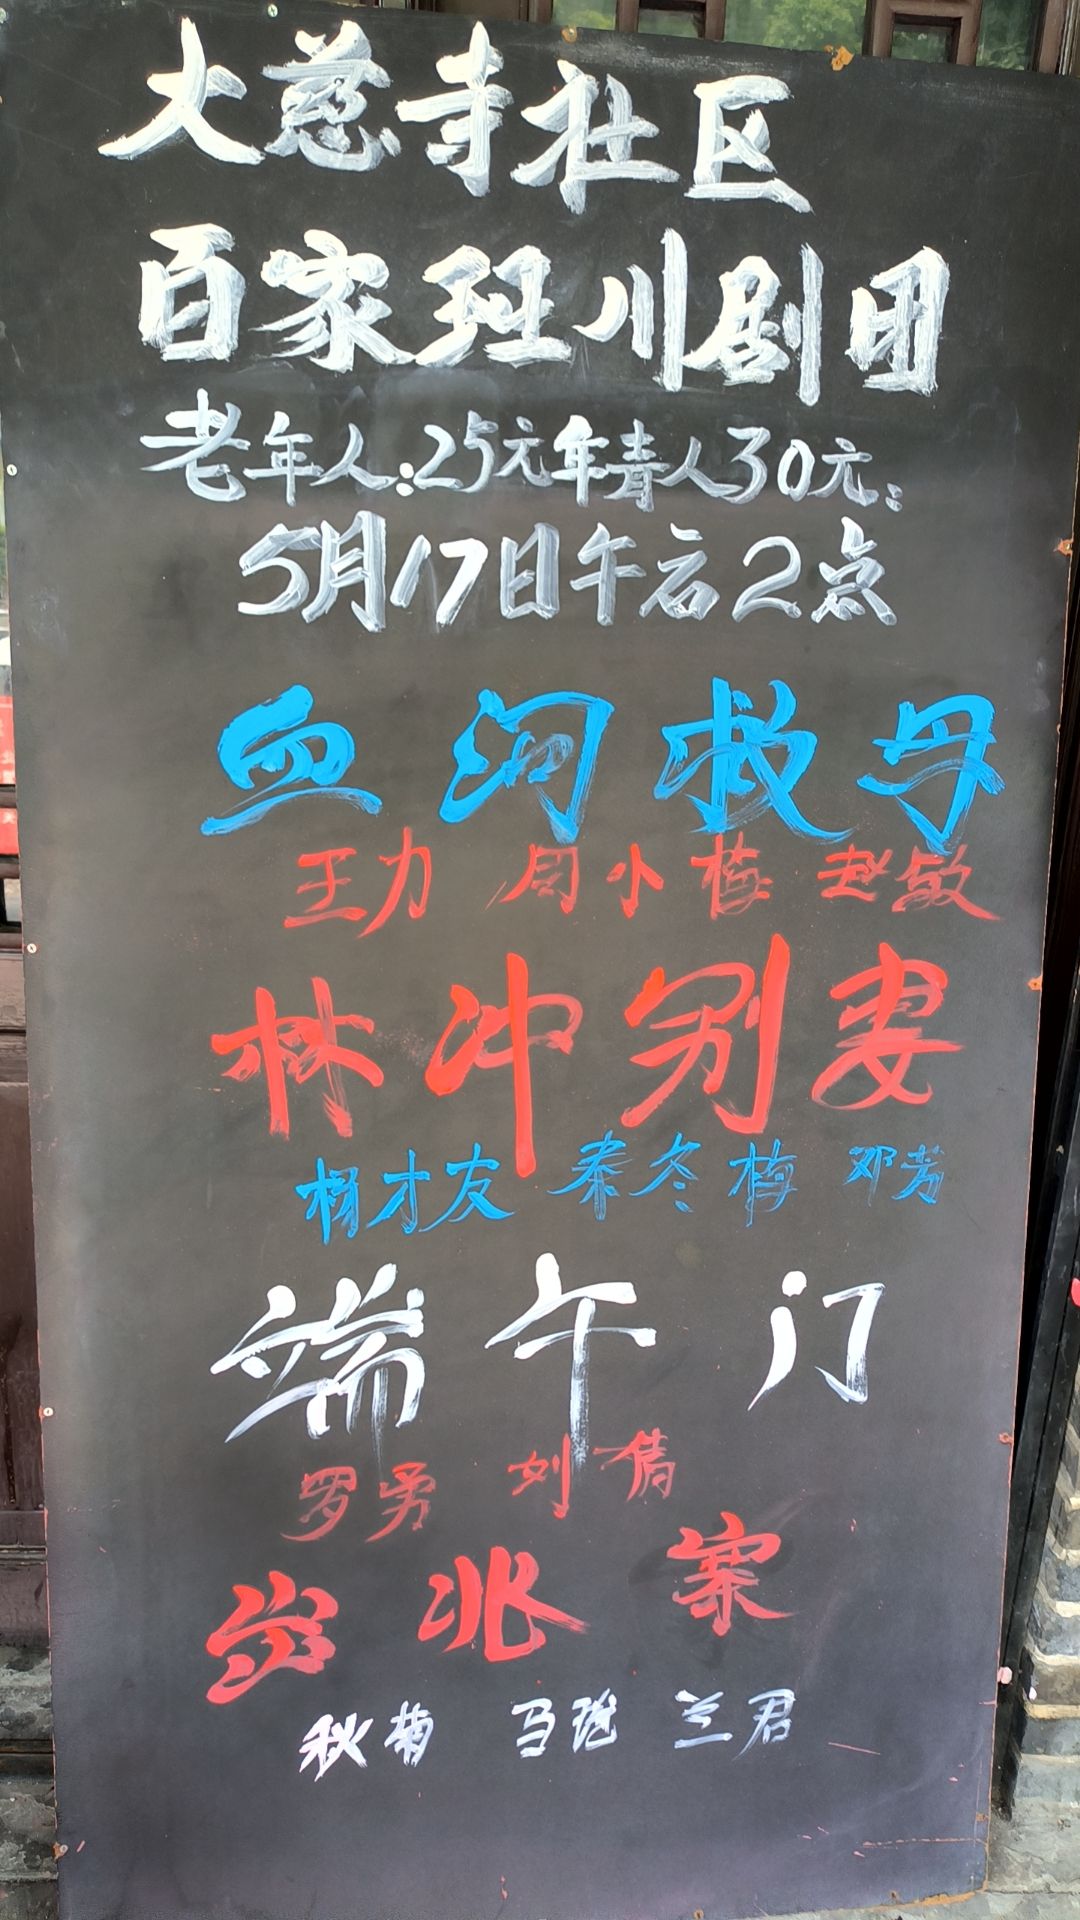 大慈寺社区
百家班川剧团
老年人:25元年青人30元:
5月17日午后2点
血河救母
王力 周小梅 赵敏
林冲别妻
杨才友 秦冬梅 邓芳
端午门
罗勇 刘倩
岁兆案
秋菊 马 兰君